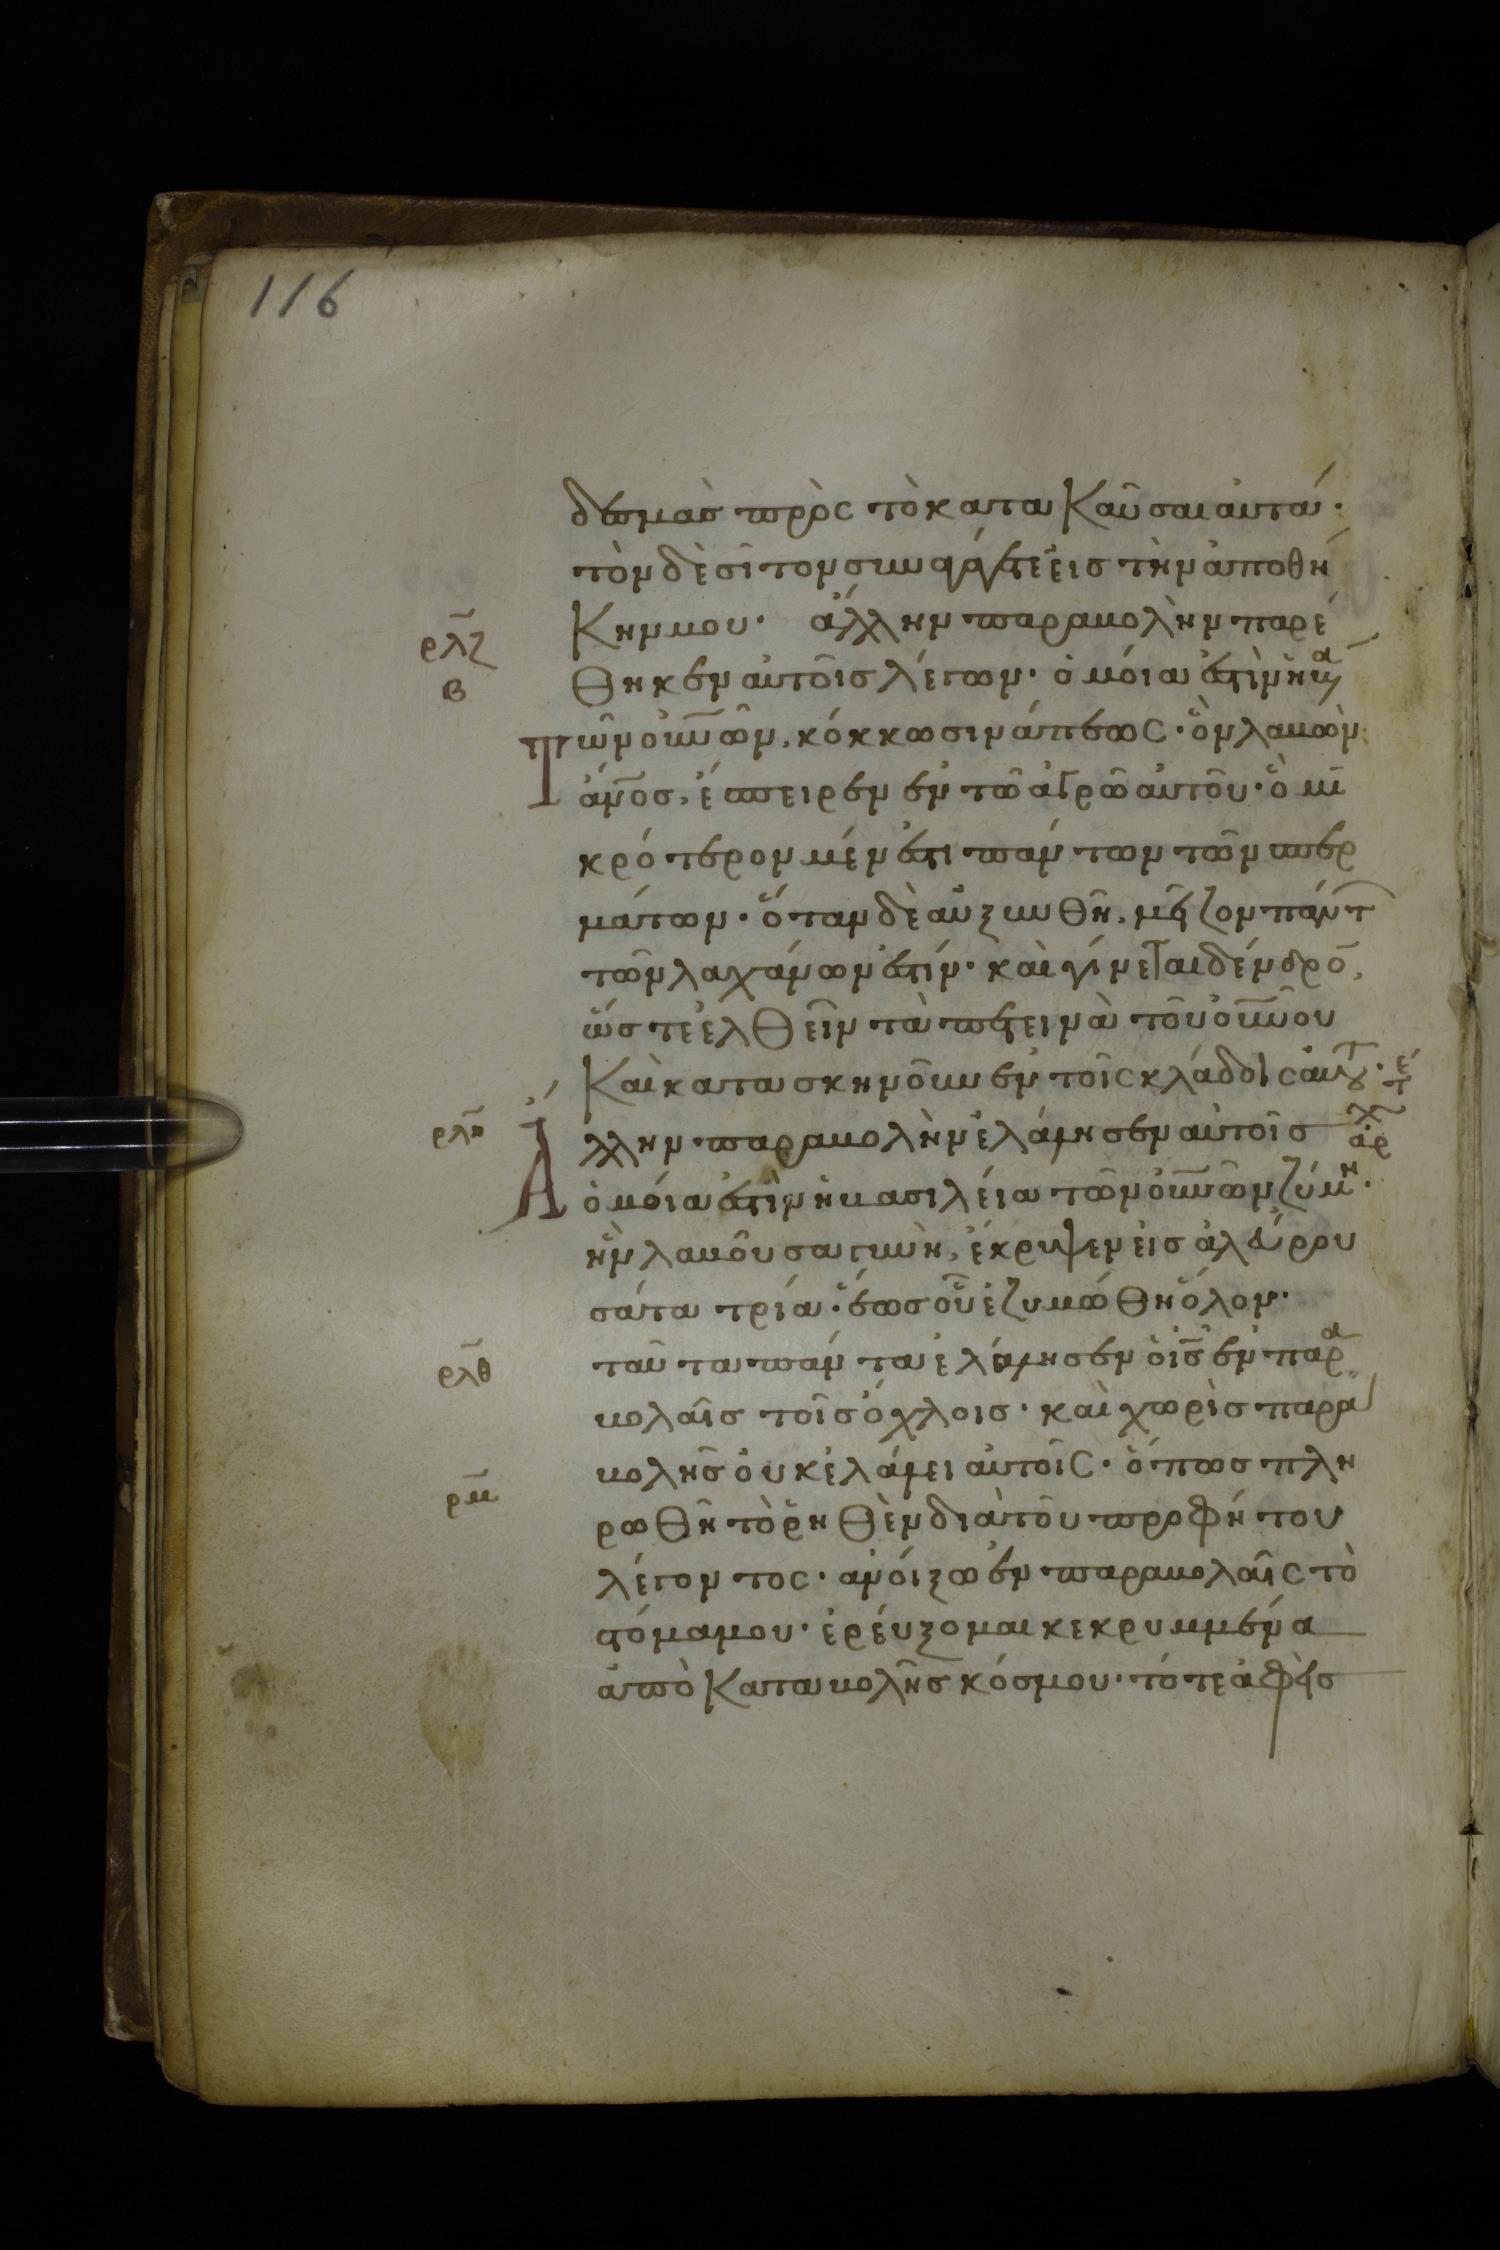 116
δέσμας πρὸς τὸ κατακαῦσαι αὐτά·
τὸν δὲ σῖτον συναγάγετε εἰς τὴν ἀποθή
κην μου· ἄλλην παραβολὴν παρέ
ρλζ
β
θηκεν αὐτοῖς λέγων· ὁμοία ἐστὶν ἡ βα
τῶν οὐνῶν, κόκκω σινάπεως· ὃν λαβὼν
ἄνος, ἔσπειρεν ἐν τῶ ἀγρῶ αὐτοῦ· ὃ μι
κρότερον μέν ἐστι πάντων τῶν σπερ
μάτων· ὅταν δὲ αὐξυνθῆ, μεῖζον πάντ
τῶν λαχάνων ἐστίν· καὶ γίνεται δένδρο
ὥστε ἐλθεῖν τὰ πετεινὰ τοῦ οὐνοῦ
καὶ κατασκηνοῦν ἐν τοῖς κλάδοις αὐτ·
τέ
ἀρχ
ρλη
Ἄλλην παραβολὴν ἐλάλησεν αὐτοῖς
ὁμοία ἐστὶν ἡ βασιλεία τῶν οὐνῶν ζύμη·
ἣν λαβοῦσα γυνὴ, ἔκρυψεν εἰς ἀλεύρου
σάτα τρία· ἕως οὗ ἐζυμώθη ὅλον·
ρλθ
ταῦτα πάντα ἐλάλησεν ὁ ις ἐν παρα
βολαῖς τοῖς ὄχλοις· καὶ χωρὶς παρα
βολῆς οὐκ ἐλάλει αὐτοῖς· ὅπως πλη
ρμ
ρωθῆ τὸ ῥηθὲν διὰ τοῦ προφήτου
λέγοντος· ἀνοίξω ἐν παραβολαῖς τὸ
στόμα μου· ἐρεύξομαι κεκρυμμένα
ἀπὸ καταβολῆς κόσμου· τότε ἀφεὶς